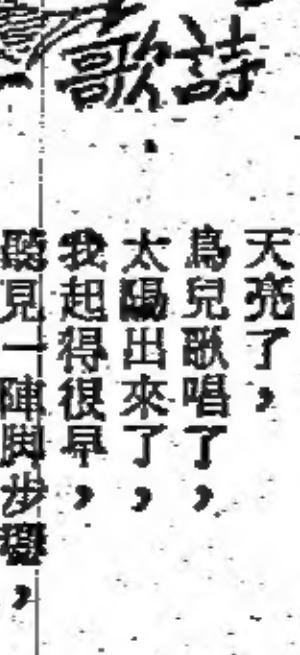 詩歌
天亮了，
鳥兒歌唱了，
太陽出來了，
我起得很早，
聽見一陣脚步聲，